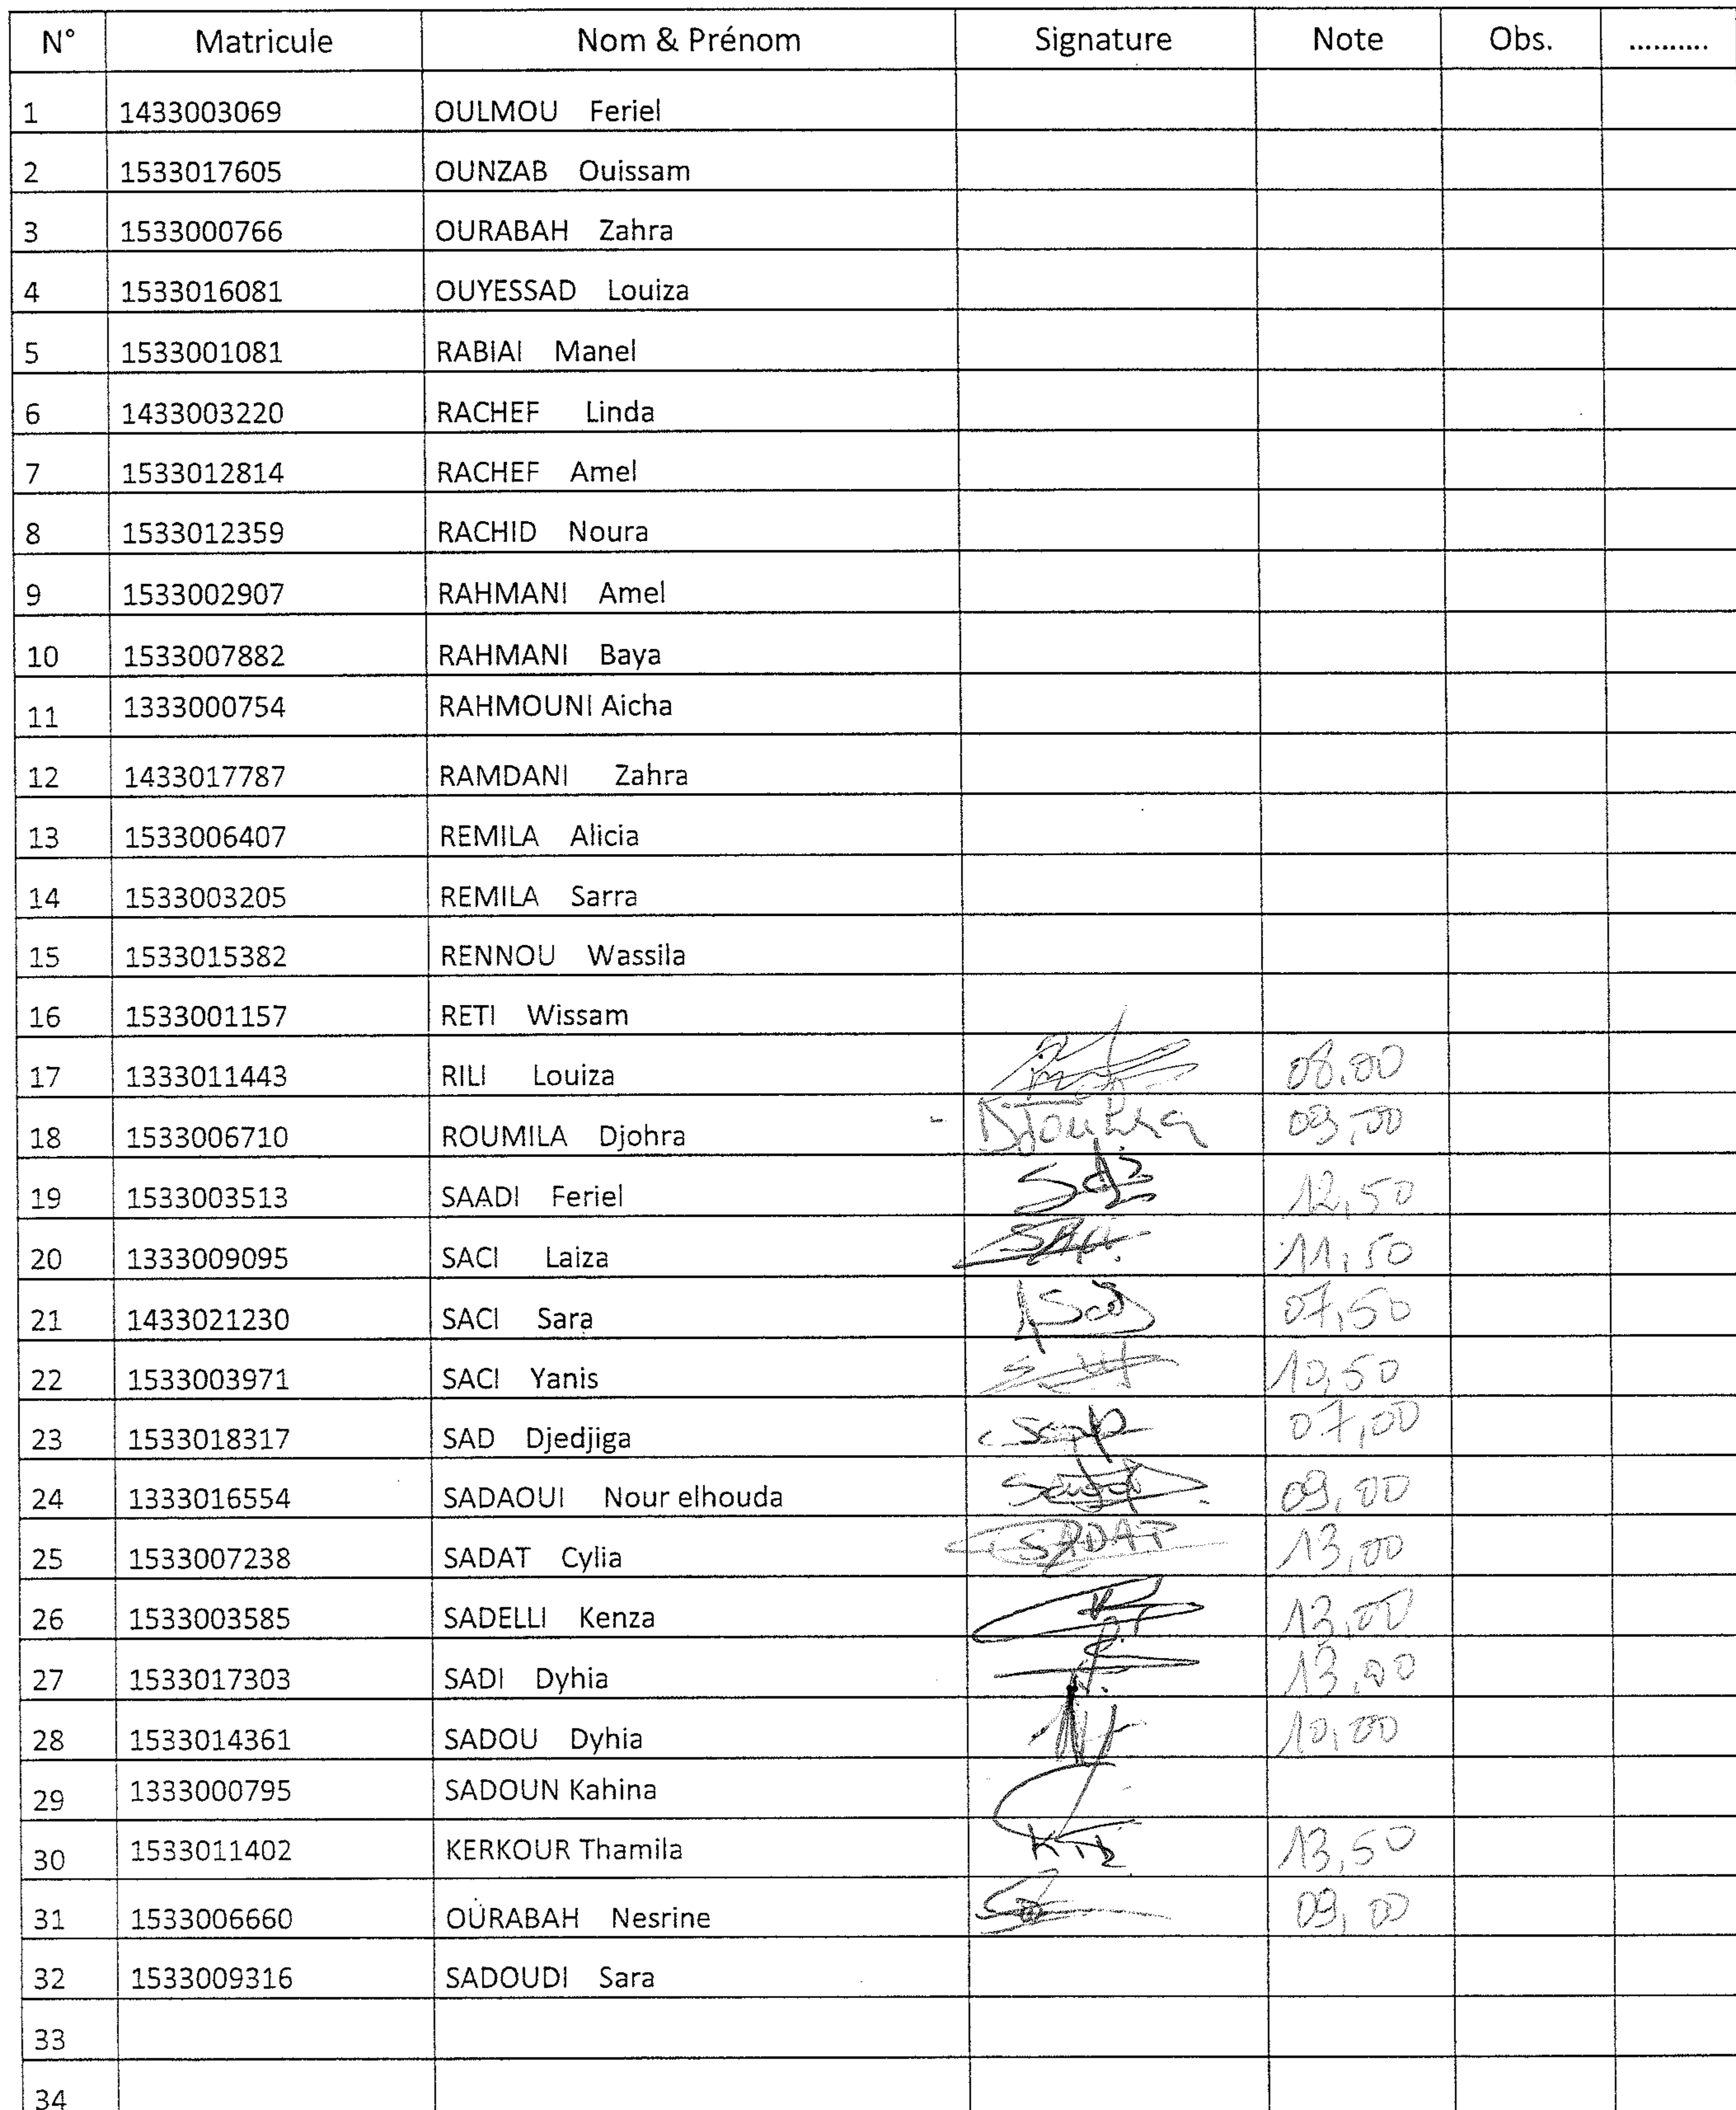 N° Matricule Nom & Prénom Signature Note Obs. ..........
1 1433003069 OULMOU Feriel
2 1533017605 OUNZAB Ouissam
3 1533000766 OURABAH Zahra
4 1533016081 OUYESSAD Louiza
5 1533001081 RABIAI Manel
6 1433003220 RACHEF Linda
7 1533012814 RACHEF Amel
8 1533012359 RACHID Noura
9 1533002907 RAHMANI Amel
10 1533007882 RAHMANI Baya
11 1333000754 RAHMOUNI Aicha
12 1433017787 RAMDANI Zahra
13 1533006407 REMILA Alicia
14 1533003205 REMILA Sarra
15 1533015382 RENNOU Wassila
16 1533001157 RETI Wissam
17 1333011443 RILI Louiza 08.00
18 1533006710 ROUMILA Djohra 09,00
19 1533003513 SAADI Feriel 12,50
20 1333009095 SACI Laiza 11,50
21 1433021230 SACI Sara 07,50
22 1533003971 SACI Yanis 10,50
23 1533018317 SAD Djedjiga 07,00
24 1333016554 SADAOUI Nour elhouda 09,00
25 1533007238 SADAT Cylia SADAT 13,00
26 1533003585 SADELLI Kenza 13,00
27 1533017303 SADI Dyhia 13,00
28 1533014361 SADOU Dyhia 10,00
29 1333000795 SADOUN Kahina
30 1533011402 KERKOUR Thamila 13,50
31 1533006660 OURABAH Nesrine 09,00
32 1533009316 SADOUDI Sara
33
34